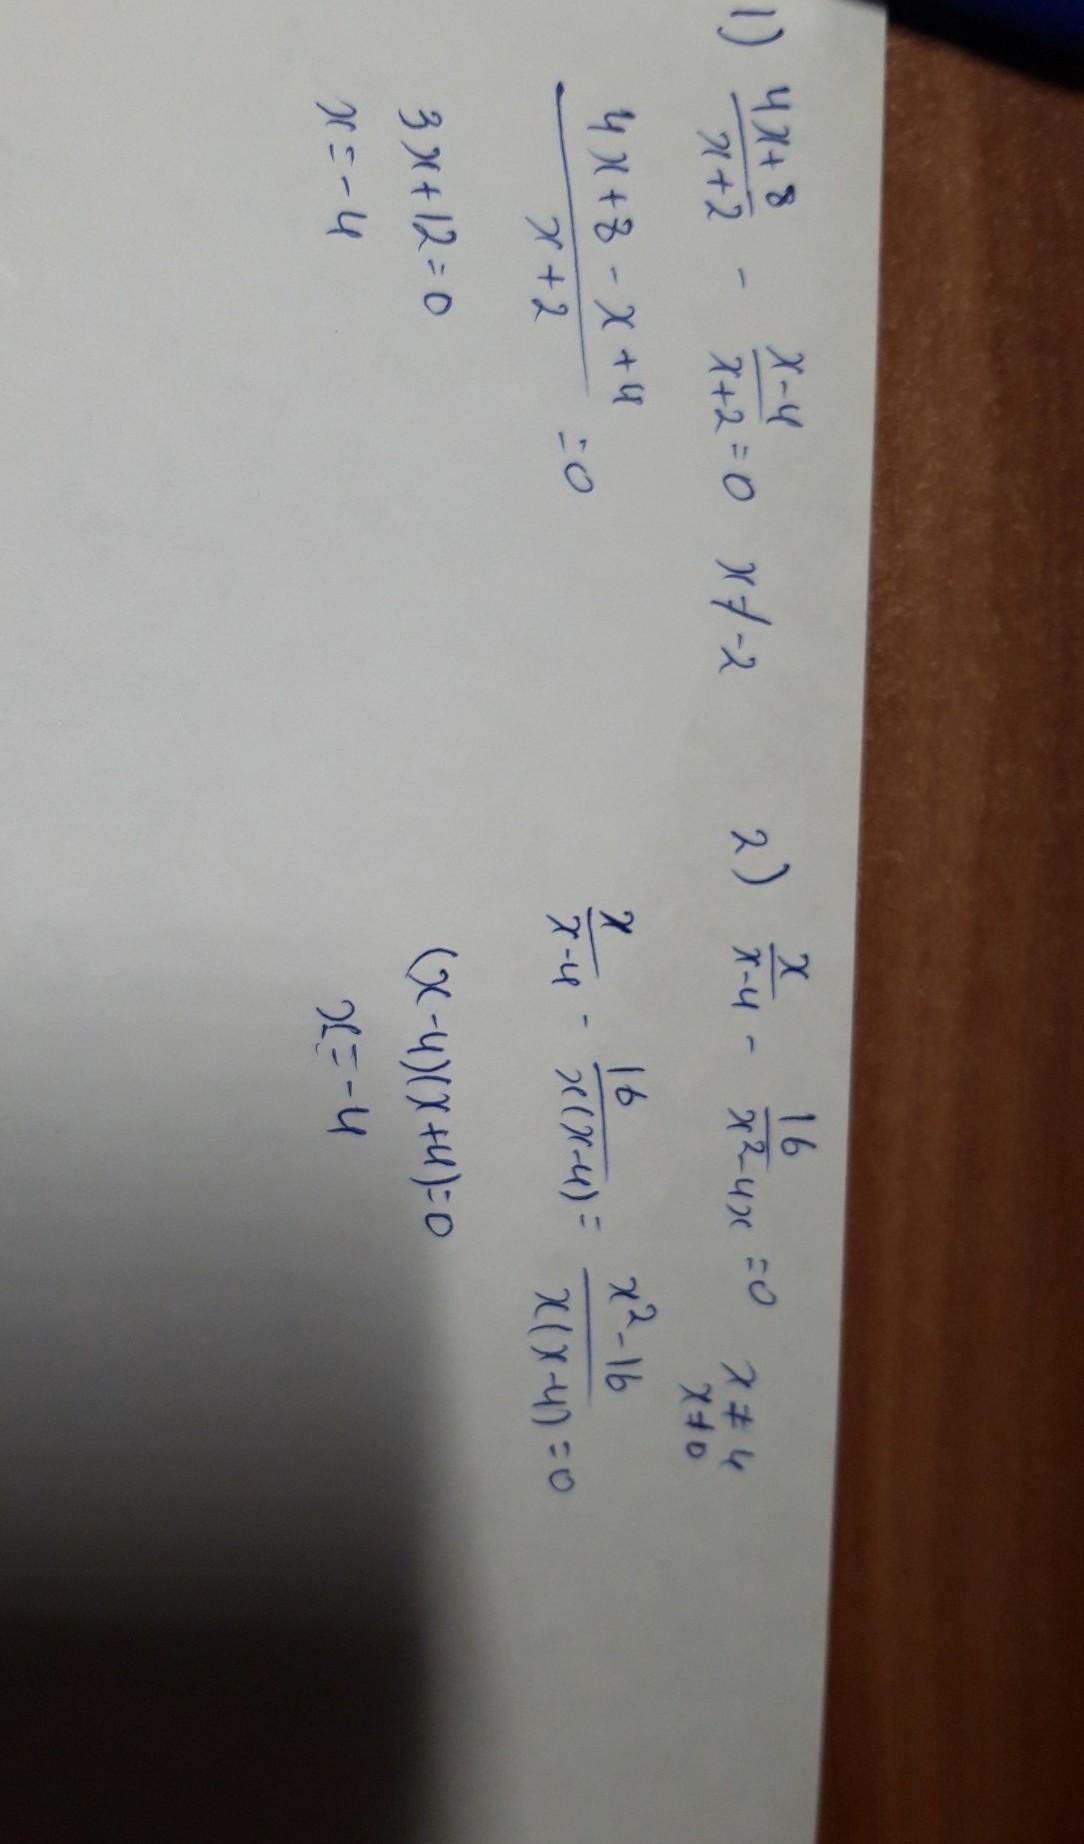 1) \frac{4x+8}{x+2} - \frac{x-4}{x+2} = 0 x ≠ -2
\frac{4x+8-x+4}{x+2} = 0
3x+12=0
x=-4
2) \frac{x}{x-4} - \frac{16}{x^2-4x} = 0 x ≠ 4
x ≠ 0
\frac{x}{x-4} - \frac{16}{x(x-4)} = \frac{x^2-16}{x(x-4)} = 0
(x-4)(x+4)=0
x=-4